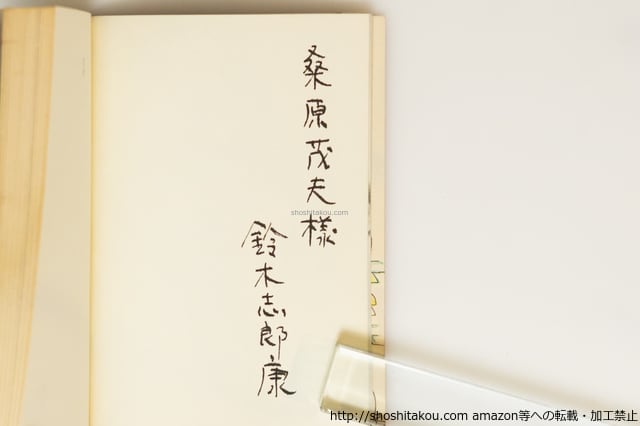 桑原茂夫様
鈴木志郎康
shoshitakou.com
http://shoshitakou.com amazon等への転載・加工禁止